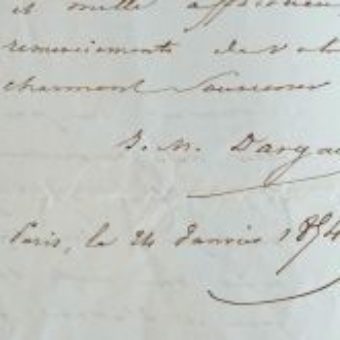 et mille affectueux
remerciements de votre
charmant souvenir
J. M. Dargau
Paris, le 24 Janvier 1854